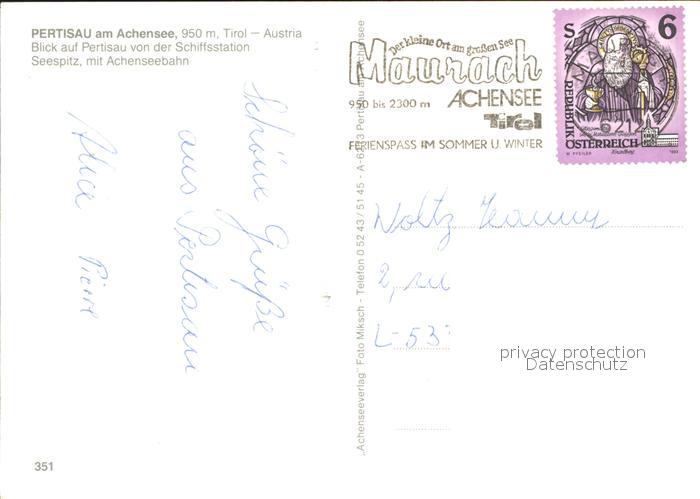 PERTISAU am Achensee, 950 m, Tirol — Austria
Blick auf Pertisau von der Schiffsstation
Seespitz, mit Achenseebahn
Schöne Grüße
aus Pertisau
Alice Pierre
351
„Achenseeverlag" Foto Miksch - Telefon 0 52 43 / 51 45 - A-6213 Pertisau am Achensee
Der kleine Ort am großen See
Maurach
950 bis 2300 m ACHENSEE
Tirol
FERIENSPASS IM SOMMER U. WINTER
S 6
REPUBLIK
ÖSTERREICH
W. PFEILER 1993
Noltz Jeanny
2, rue
L-53
privacy protection
Datenschutz